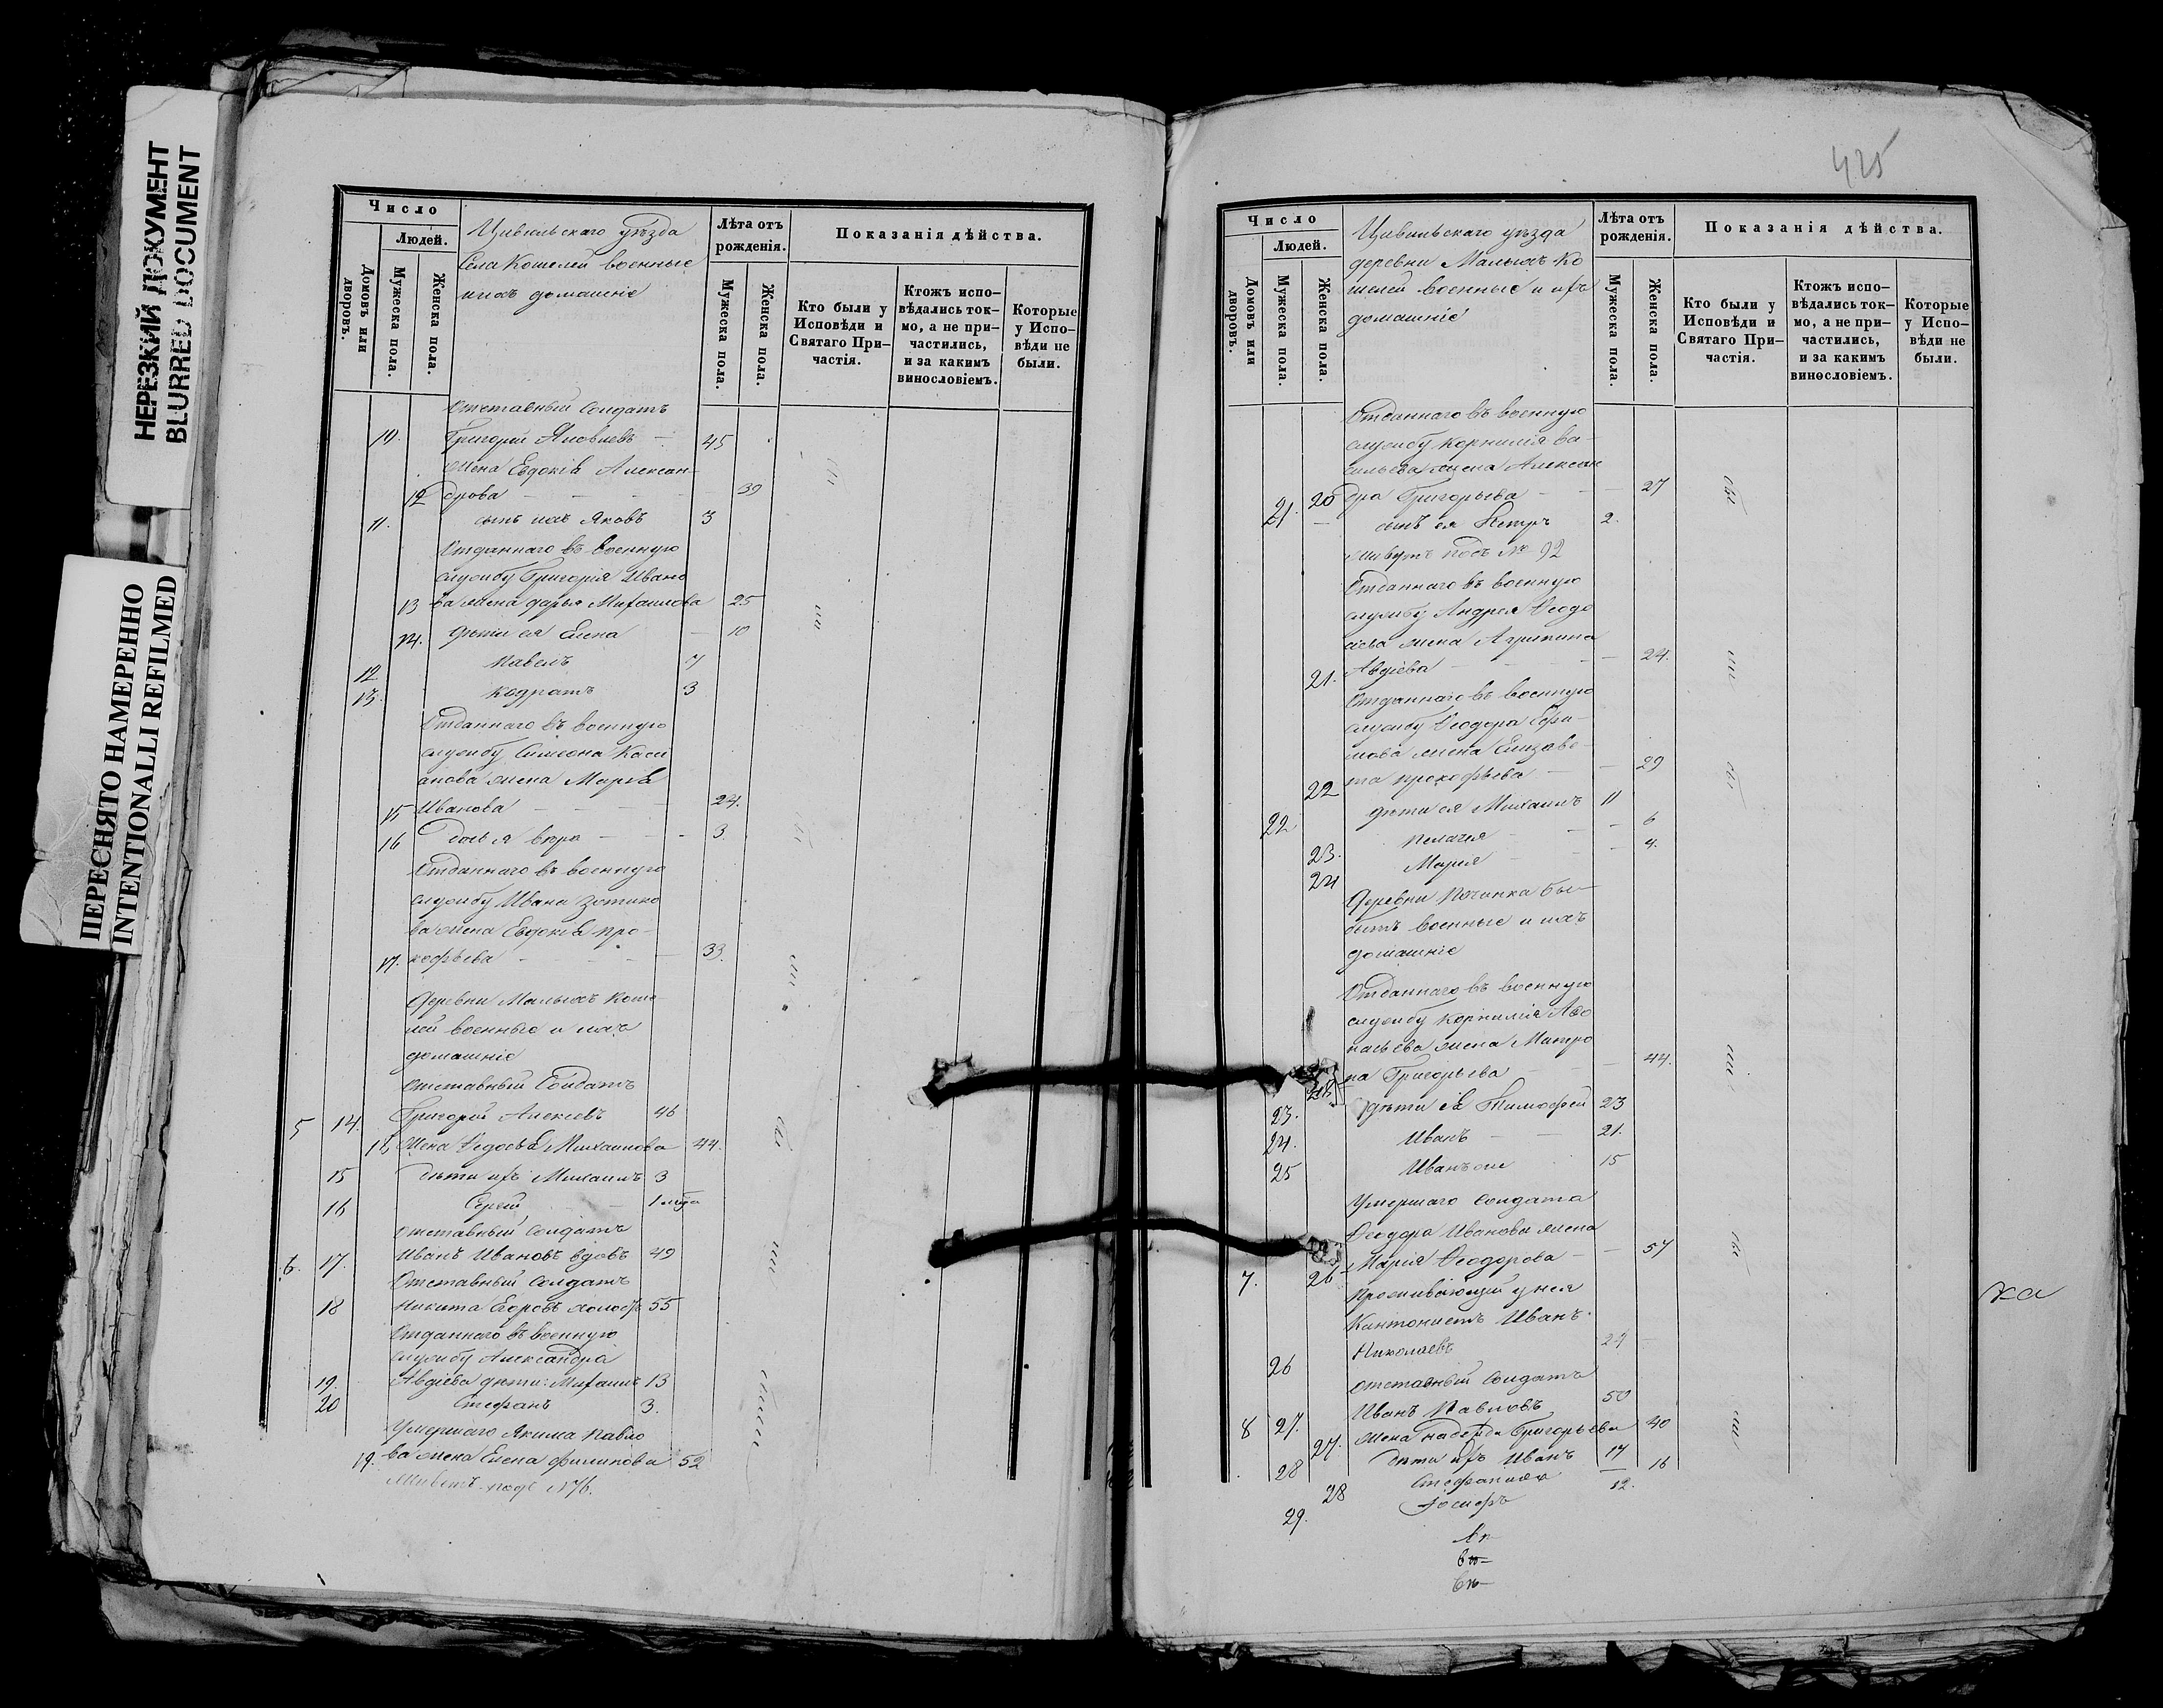 НЕРЕЗКИЙ ДОКУМЕНТ
BLURRED DOCUMENT
ПЕРЕСНЯТО НАМЕРЕННО
INTENTIONALLI REFILMED
Число
Людей.
Домовъ или дворовъ.
Мужеска пола.
Женска пола.
Цивильскаго уѣзда
Села Кошелей военные
и ихъ домашніе
Лѣта отъ рожденія.
Мужеска пола.
Женска пола.
Показанія дѣйства.
Кто были у Исповѣди и Святаго При-
частія.
Ктожъ испо-
вѣдались ток-
мо, а не при-
частились,
и за какимъ
винословіемъ.
Которые
у Испо-
вѣди не
были.
Отставный Солдатъ
10. Григорій Яковлевъ - 45
жена Евдокія Алексан-
12 дрова - - - 39
11. сынъ ихъ Яковъ 3
Отданнаго въ военную
службу Григорія Ивано
13 ва жена Дарья Михаилова 25
14. дѣти ея Елена - 10
12 Павелъ 7
13. Кодратъ 3
Отданнаго въ военную
службу Симеона Касі
анова жена Марія
15 Иванова - - - 24.
16 дочь ея Вѣра - - - 3.
Отданнаго въ военную
службу Ивана Зотико
ва жена Евдокія Про-
17. кофьева - - - 33.
Деревни Малыхъ Коше-
лей военные и ихъ
домашніе
Отставный Солдатъ
5 14. Григорій Алексѣевъ 46
18 Жена Ѳедосья Михаилова 44.
15 дѣти ихъ Михаилъ 3
16 Сергѣй - 1
Отставный Солдатъ
6. 17. Иванъ Ивановъ вдовъ 49
Отставный Солдатъ
18 Никита Егоровъ холостъ 55
Отданнаго въ военную
службу Александра
19. Авдіева дѣти: Михаилъ 13
20 Стефанъ 3.
Умершаго Якима Павло
19. ва жена Елена Филипова 52
Живетъ подъ №76.
425
Число
Людей.
Домовъ или дворовъ.
Мужеска пола.
Женска пола.
Цивильскаго уѣзда
деревни Малыхъ Ко
шелей военные и ихъ
домашніе
Лѣта отъ рожденія.
Мужеска пола.
Женска пола.
Показанія дѣйства.
Кто были у Исповѣди и Святаго При-
частія.
Ктожъ испо-
вѣдались ток-
мо, а не при-
частились,
и за какимъ
винословіемъ.
Которые
у Испо-
вѣди не
были.
Отданнаго въ военную
службу Корнилія Ва-
сильева жена Алексан
20 дра Григорьева - - 27
21. сынъ ея Петръ 2.
живутъ подъ № 92
Отданнаго въ военную
службу Андрея Ѳеодо
сіева жена Агрипина
21. Авдіева - - - 24.
Отданнаго въ военную
службу Ѳеодора Ефи-
мова жена Елизаве-
22 та Прокофьева - - 29
22 дѣти ея Михаилъ 11
23. Пелагея - - 6
24 Марія - - 4.
Деревни Починка Бы-
бытъ военные и ихъ
домашніе
Отданнаго въ военную
службу Корнилія Аѳо
насьева жена Матро
на Григорьева - - 44.
23. дѣти ея Тимофей 23
24. Иванъ - - 21.
25 Иванъ же 15
Умершаго Солдата
Ѳеодора Иванова жена
7. 26 Марія Ѳеодорова - - 57
Проживающій у нея
Кантонистъ Иванъ
26 Николаевъ
Отставный Солдатъ
8 27. Иванъ Павловъ 50
27. Жена Надежда Григорьева 40
28 дѣти ихъ Иванъ 17
28 Стефанида - 16
29. Іосифъ 12.
ка